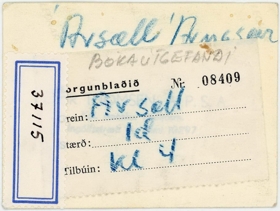 Ársæll Árnason
BÓKAÚTGEFANDI
orgunblaðið Nr. 08409
rein: Ársæll
tærð: 1d
filbúin: kl 4
37115